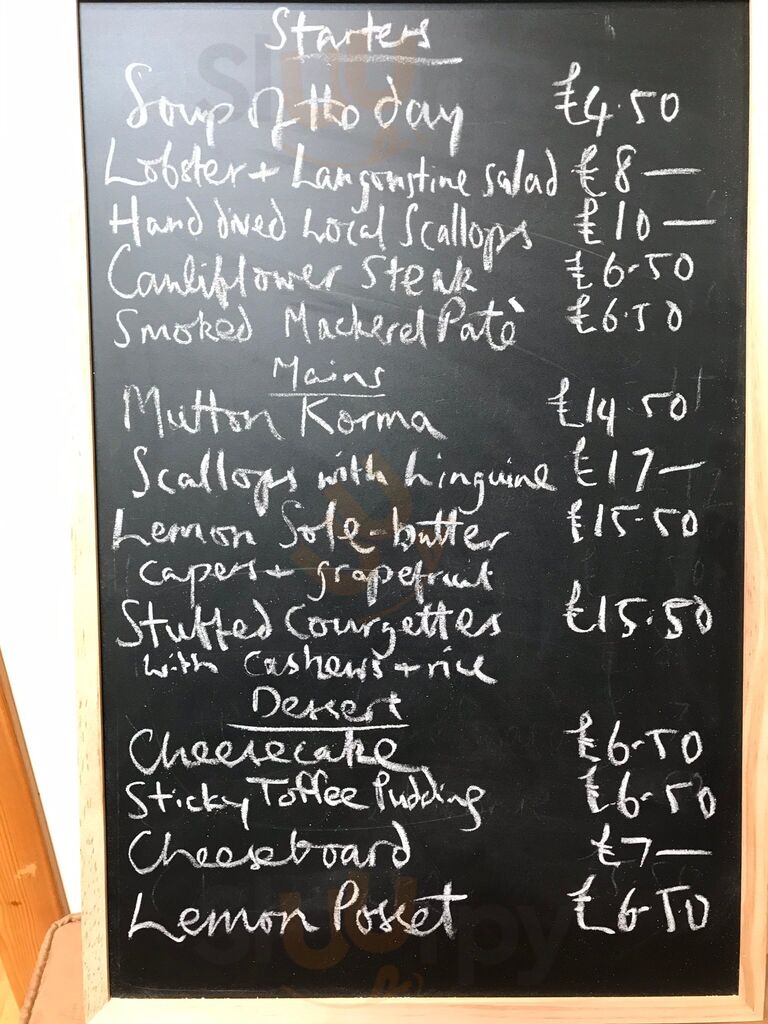 Starters
Soup of the day £4.50
Lobster + Langoustine salad £8—
Hand dived Local Scallops £10—
Cauliflower Steak £6-50
Smoked Mackerel Patè £6.50
Mains
Mutton Korma £14.50
Scallops with Linguine £17—
Lemon Sole-butter £15-50
capers + grapefruit
Stuffed Courgettes £15.50
with Cashews + rice
Dessert
Cheesecake £6-50
Sticky Toffee Pudding £6-50
Cheeseboard £7—
Lemon Posset £6-50